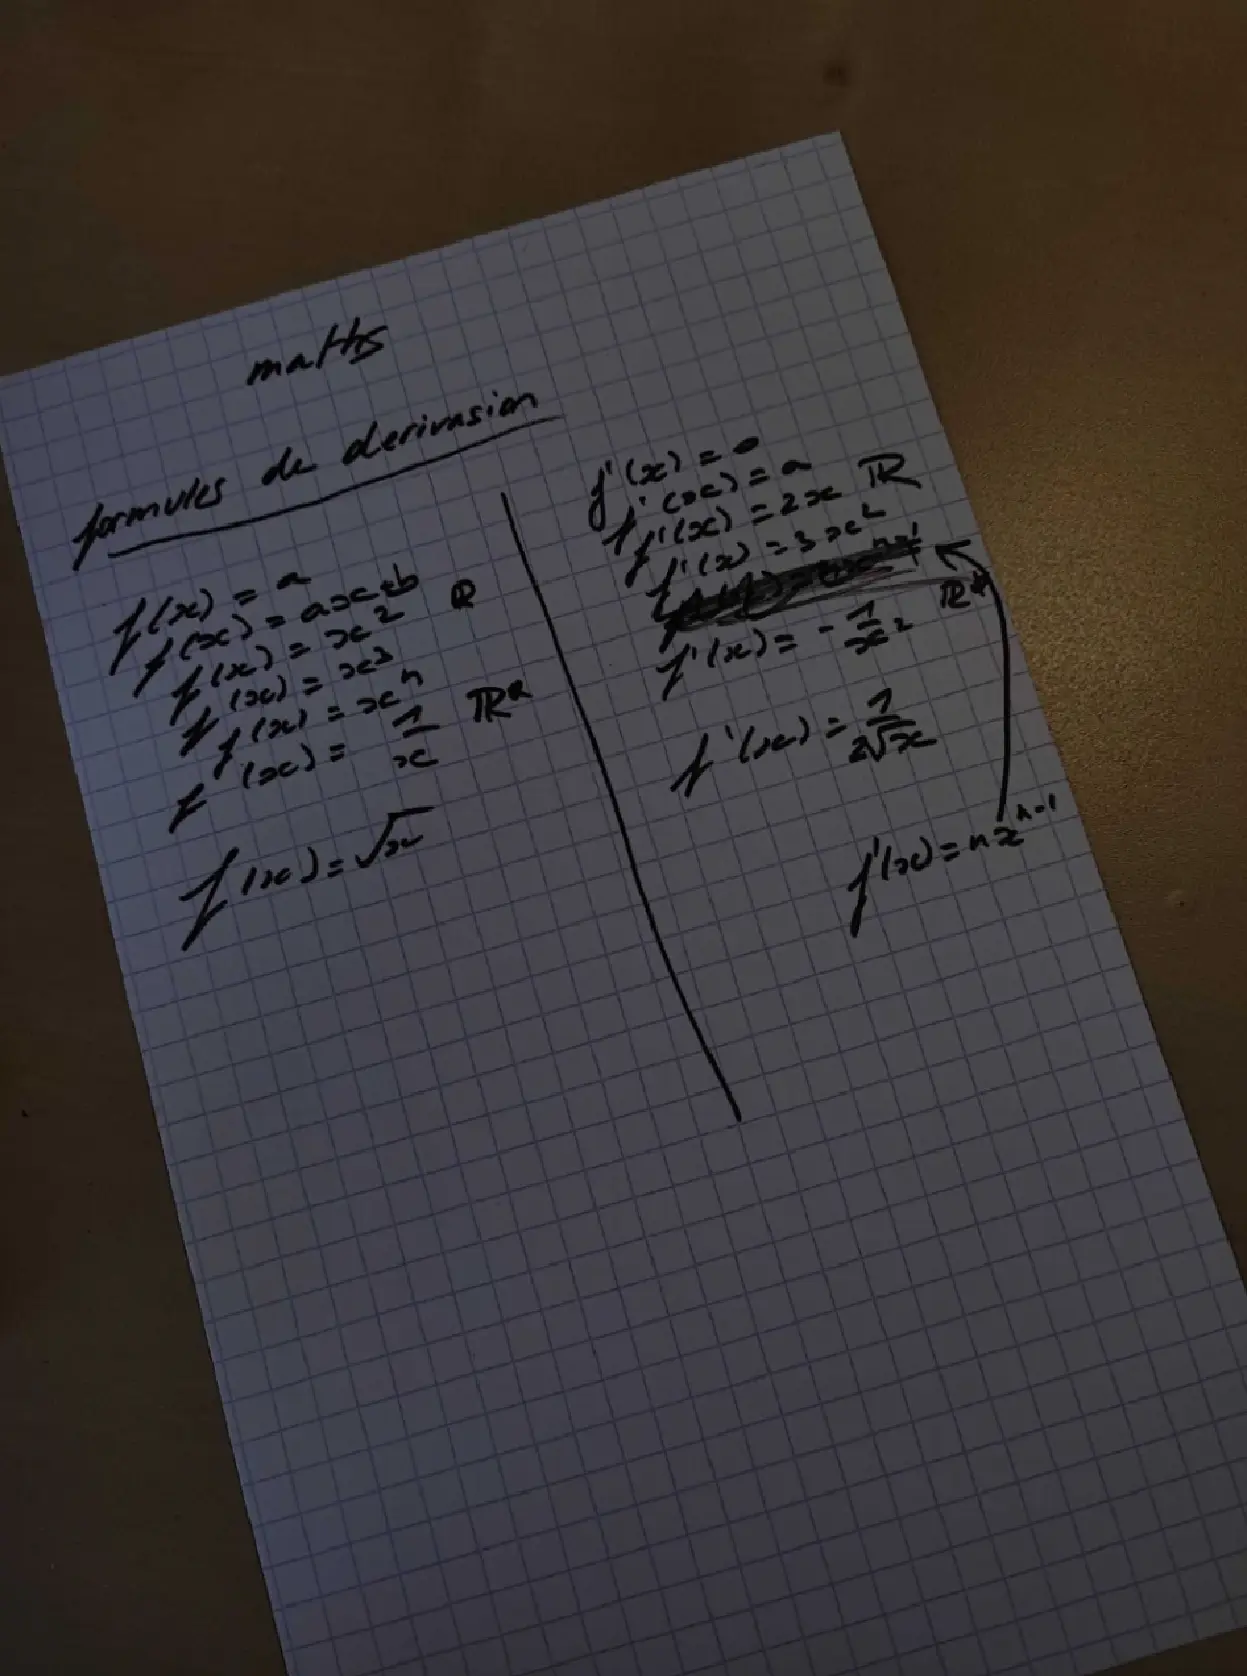 maths
formules de derivasion
f(x) = a
f(x) = ax+b
f(x) = x² R
f(x) = x³
f(x) = xⁿ
f(x) = 1/x R*
f(x) = √x
f'(x) = 0
f'(x) = a
f'(x) = 2x R
f'(x) = 3x²
f'(x) = -1/x² R*
f'(x) = 1/2√x
f'(x) = nxⁿ⁻¹